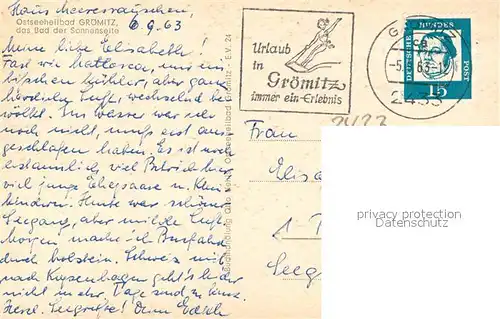 Haus Meeresrauschen,
Ostseeheilbad GRÖMITZ,
das Bad der Sonnenseite
6.9.63
Meine liebe Elisabeth!
Fast wie Mallorca, nur ein
bißchen kühler, aber ganz
herrliche Luft, wechselnd be
wölkt. Im Wasser war ich
noch nicht, muß erst aus
geschlafen haben. Es ist noch
erstaunlich viel Betrieb hier
viel junge Ehepaare u. Klein
kindern. Heute war schöner
Seegang, aber milde Luft.
Morgen mache ich Busfahrt
durch Holstein. Schweiz mit
nach Kopenhagen geht's leider
nicht in der Tage sind zu kurz.
Herzl. Seegrüße! Deine Edith
Urlaub
in
Grömitz
immer ein Erlebnis
GRÖMITZ
-5.9.63-
2433
DEUTSCHE BUNDESPOST
15
2433
Frau
Elisa
1
Seeg
Ostseeheilbad Grömitz E.V. 24
privacy protection
Datenschutz